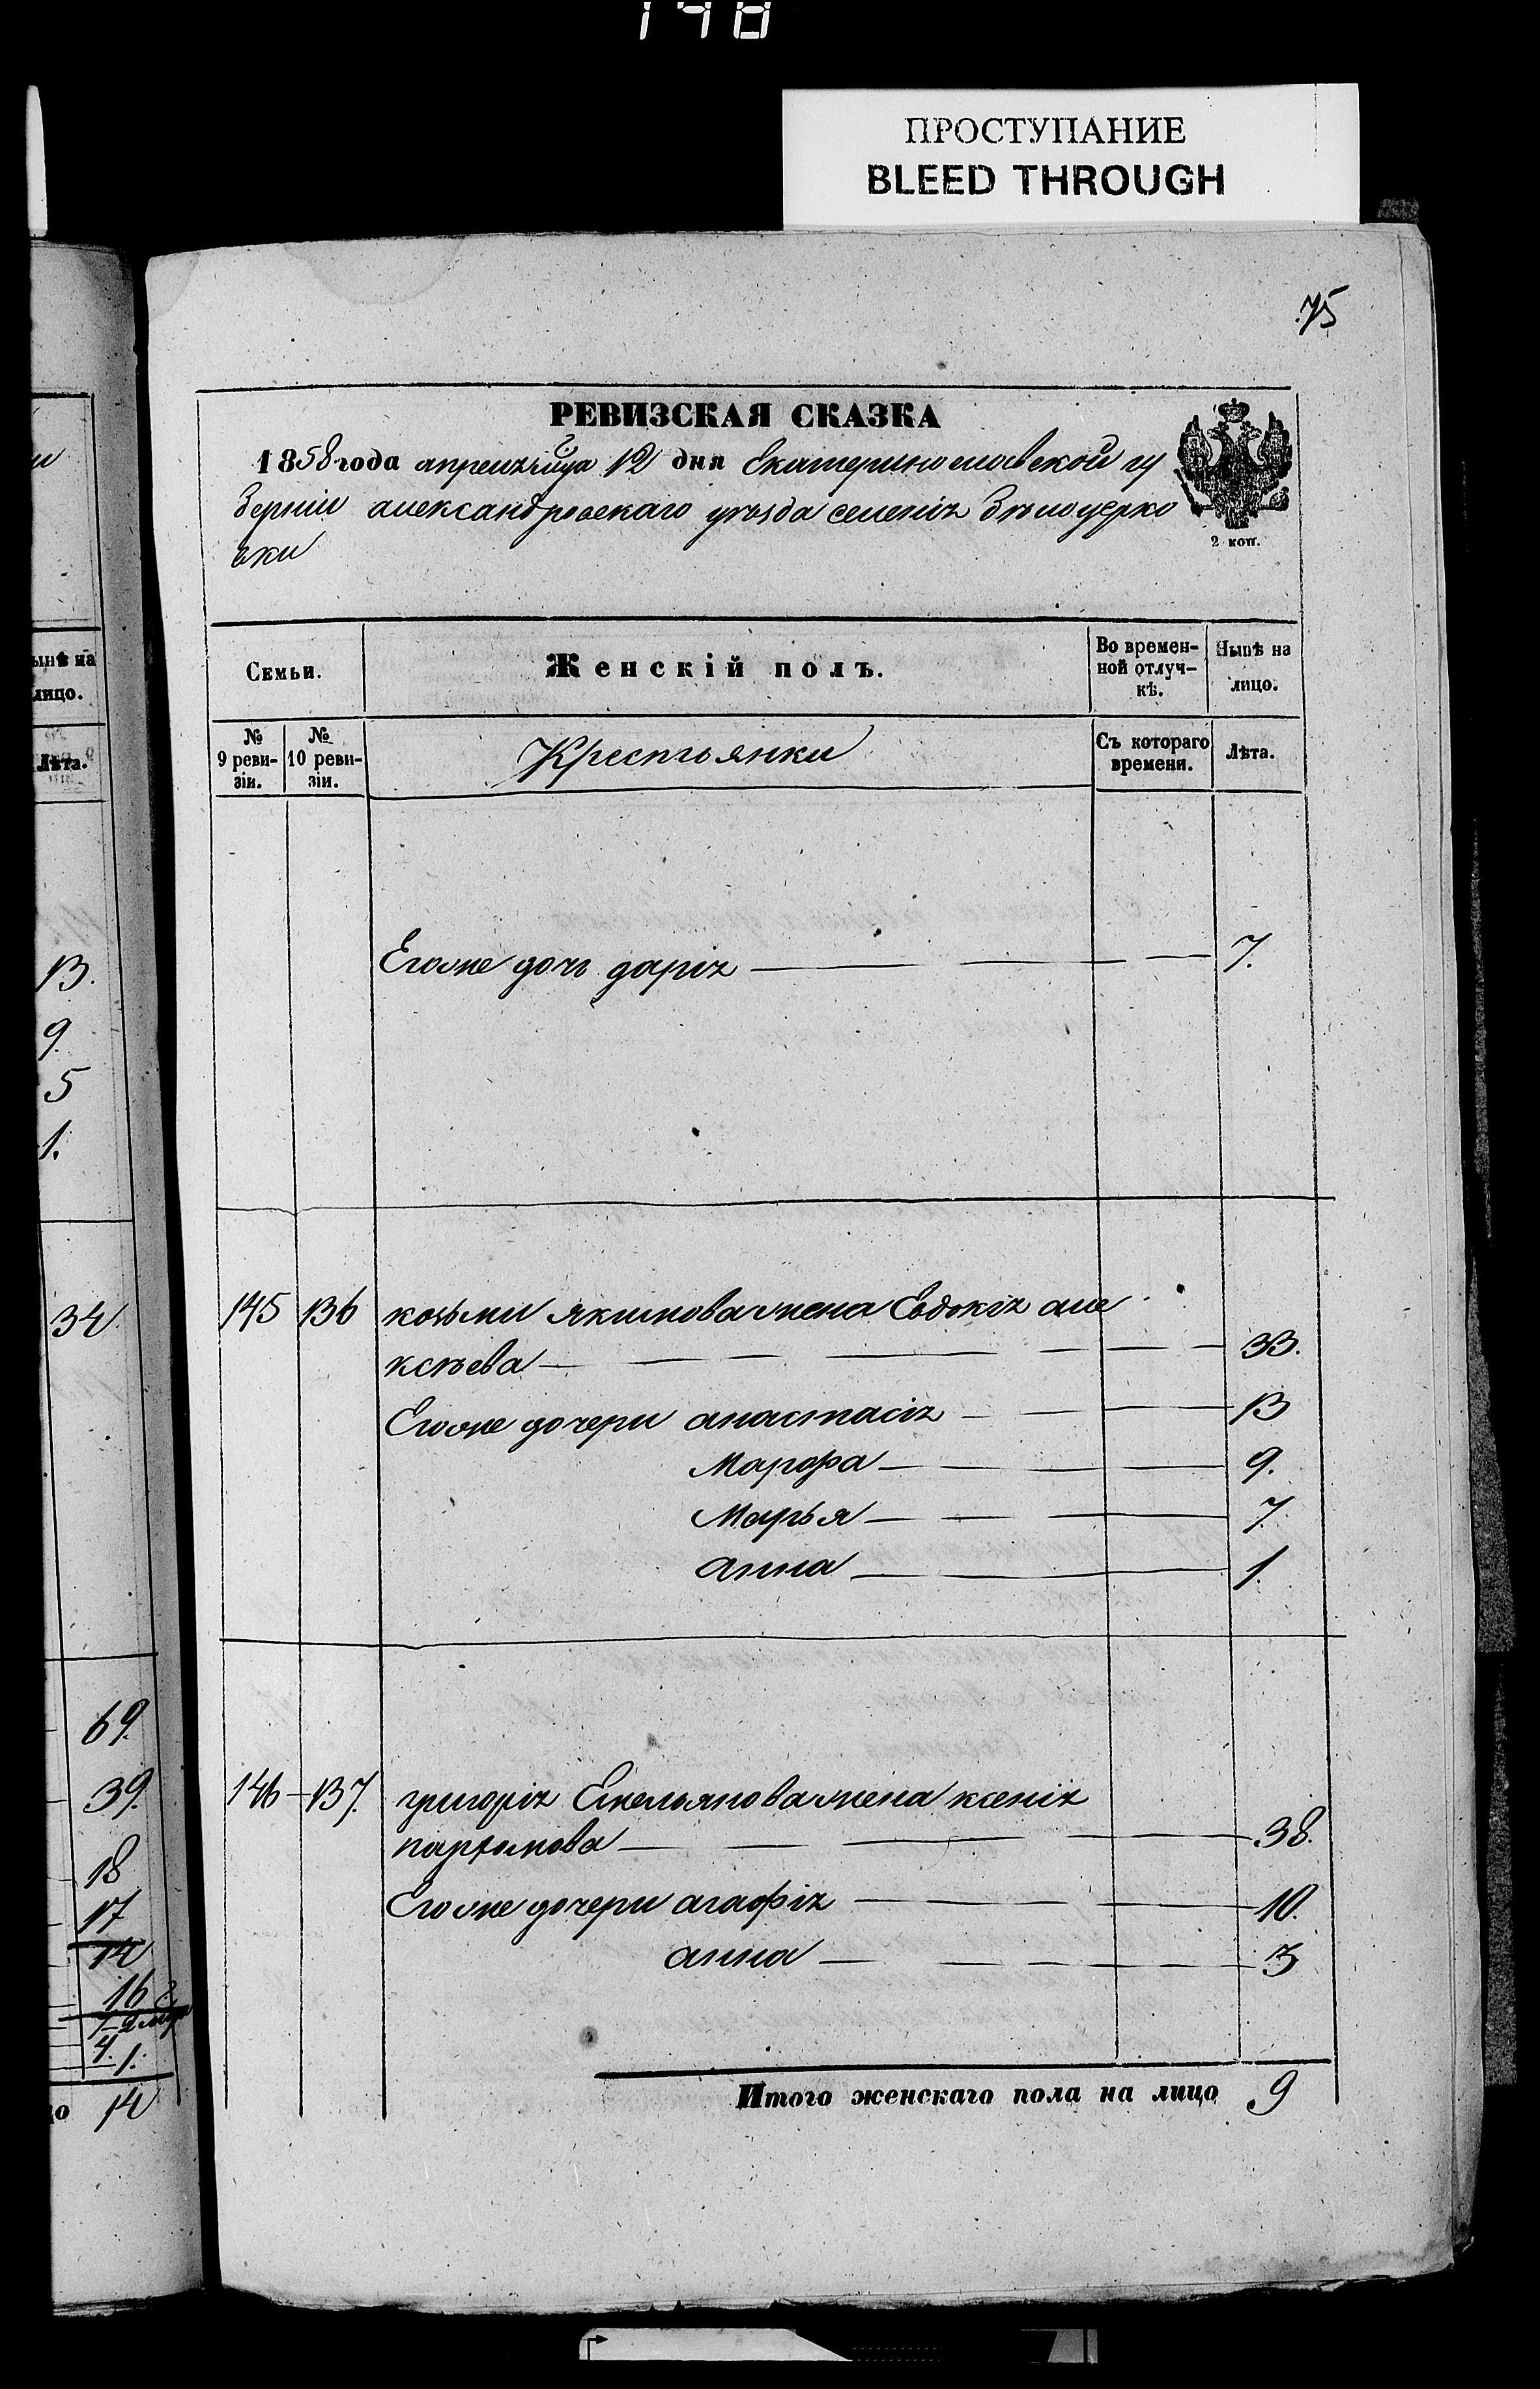 148
ПРОСТУПАНИЕ
BLEED THROUGH
75
РЕВИЗСКАЯ СКАЗКА
1858 года апреля мца 12 дня Екатеринославской гу
берніи александровскаго уѣзда селенія Бѣлоцерко
вки
2 коп.
Семьи.
Женскій полъ.
Во времен-
ной отлуч-
кѣ.
Нынѣ на
лицо.
№
9 реви-
зіи.
№
10 реви-
зіи.
Крестьянки
Съ котораго
времени.
Лѣта.
Егоже дочь дарія 7.
145 136 козьми якимова жена Евдокія але
ксѣева 33.
Егоже дочери анастасія 13
Марфа 9.
Марья 7.
анна 1.
146 137. григорія Емельянова жена ксенія
парѳимова 38.
Егоже дочери агафія 10.
анна 3
Итого женскаго пола на лицо 9
ынѣ на
лицо.
Лѣта.
13.
9.
5
1.
34
69.
39.
18
17
14
16
4.
1.
14